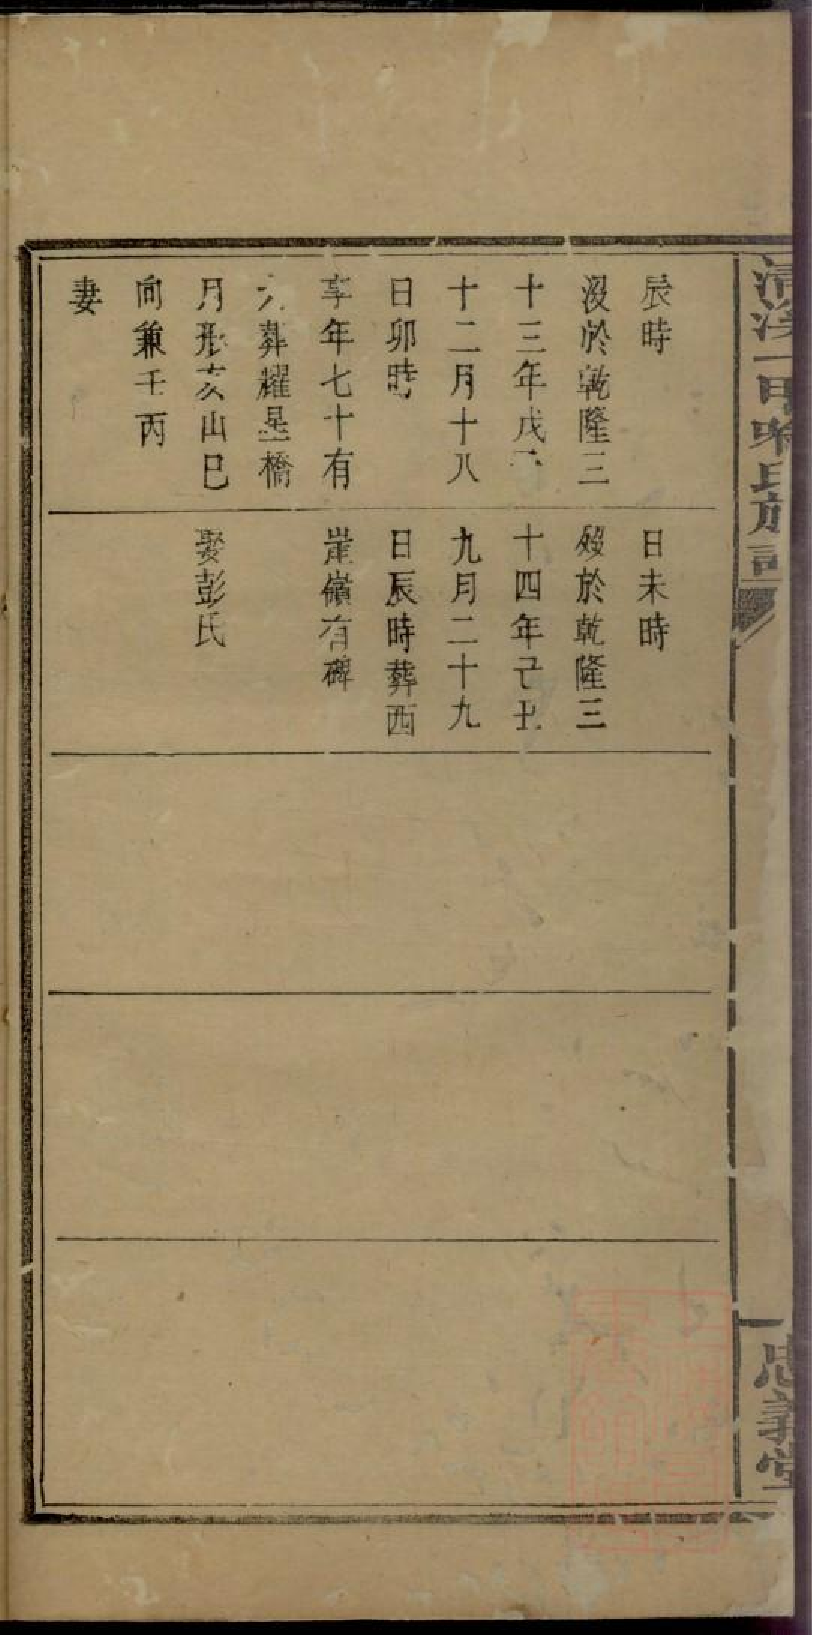 辰時
沒於乾隆三
十三年戊
十二月十八
日卯時
享年七十有
葬耀星橋
月形亥山巳
向兼壬丙
妻
日未時
歿於乾隆三
十四年己丑
九月二十九
日辰時葬西
崖嶺有碑
娶彭氏
忠義堂